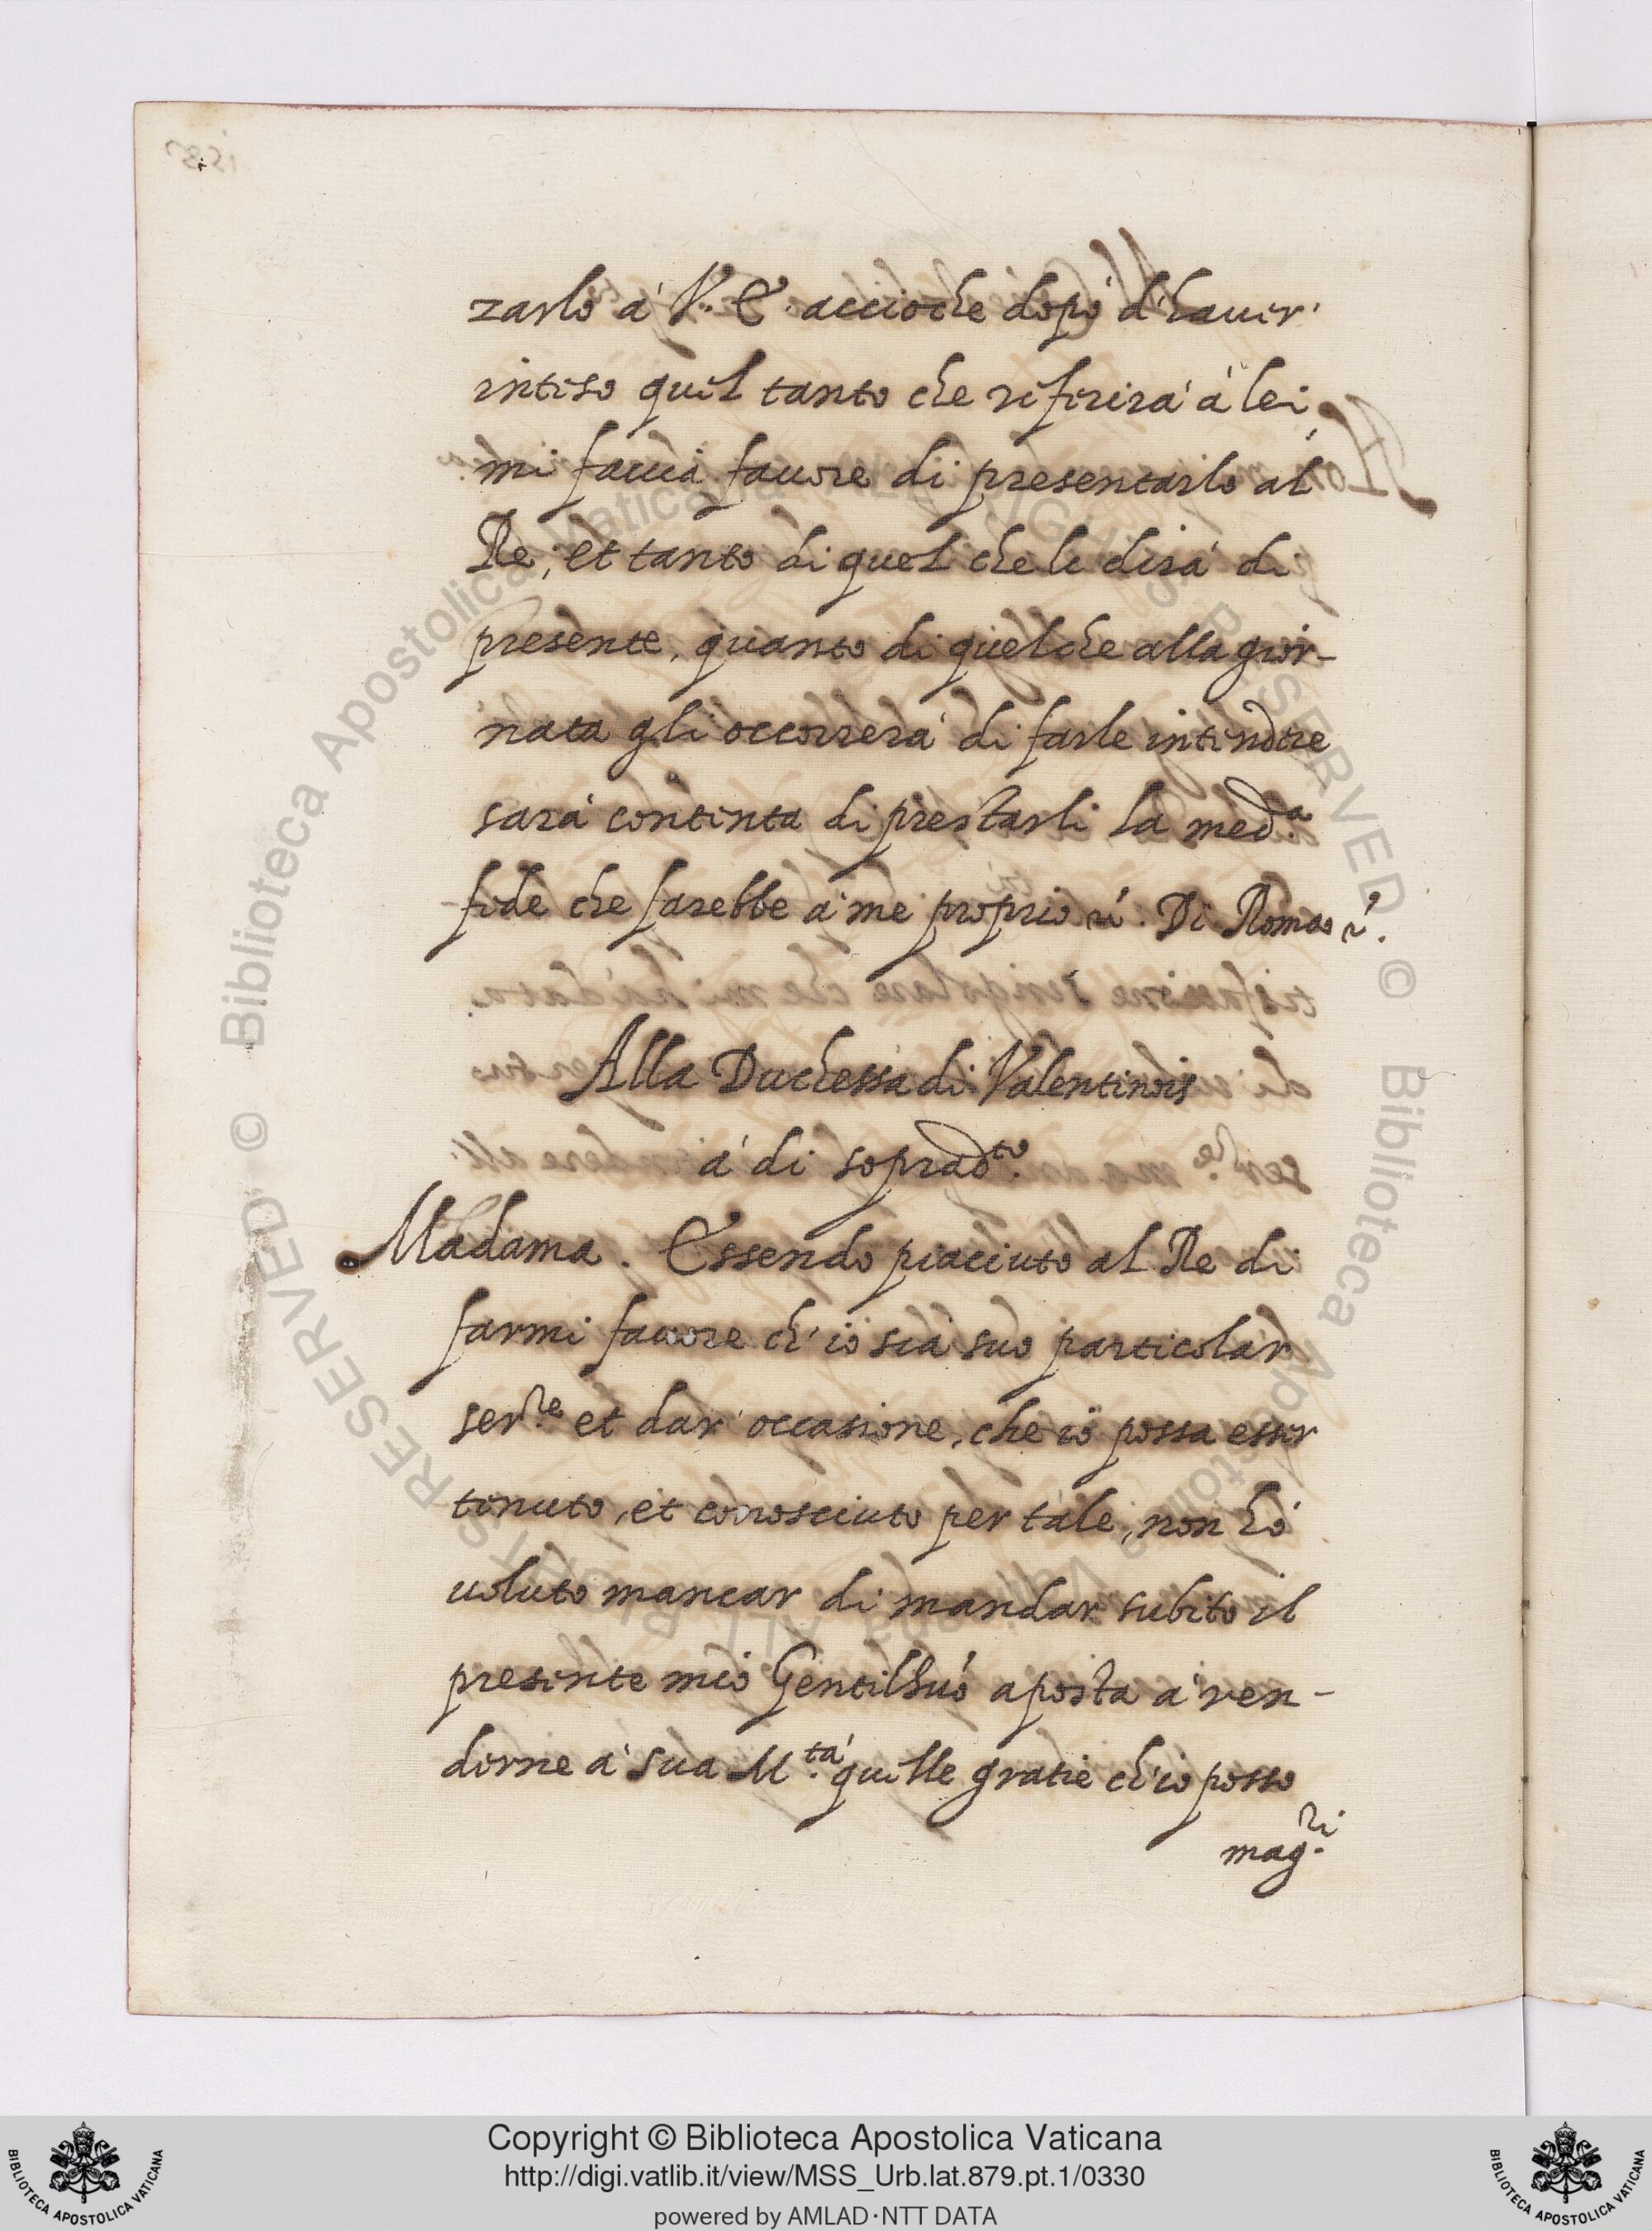 zarlo à V. E. accioche dopò d'hauer
inteso quel tanto che riferirà à lei
mi faccia fauore di presentarlo al
Re, et tanto di quel che le dirà di
presente, quanto di quel che alla gior-
nata gli occorrerà di farle intendere
sarà contenta di prestarli la med.a
fede che farebbe à me proprio &. Di Roma &.
Alla Duchessa di Valentinois
à di sopradto.
Madama. Essendo piaciuto al Re di
farmi fauore ch'io sia suo particolar
ser.re et dar occasione, che io possa esser
tenuto, et conosciuto per tale, non hò
uoluto mancar di mandar subito il
presente mio Gentilhuó aposta à ren-
derne à sua M.tà quelle gratie ch'io posso
mag.ri
Copyright © Biblioteca Apostolica Vaticana
http://digi.vatlib.it/view/MSS_Urb.lat.879.pt.1/0330
powered by AMLAD·NTT DATA
BIBLIOTECA APOSTOLICA VATICANA
BIBLIOTECA APOSTOLICA VATICANA